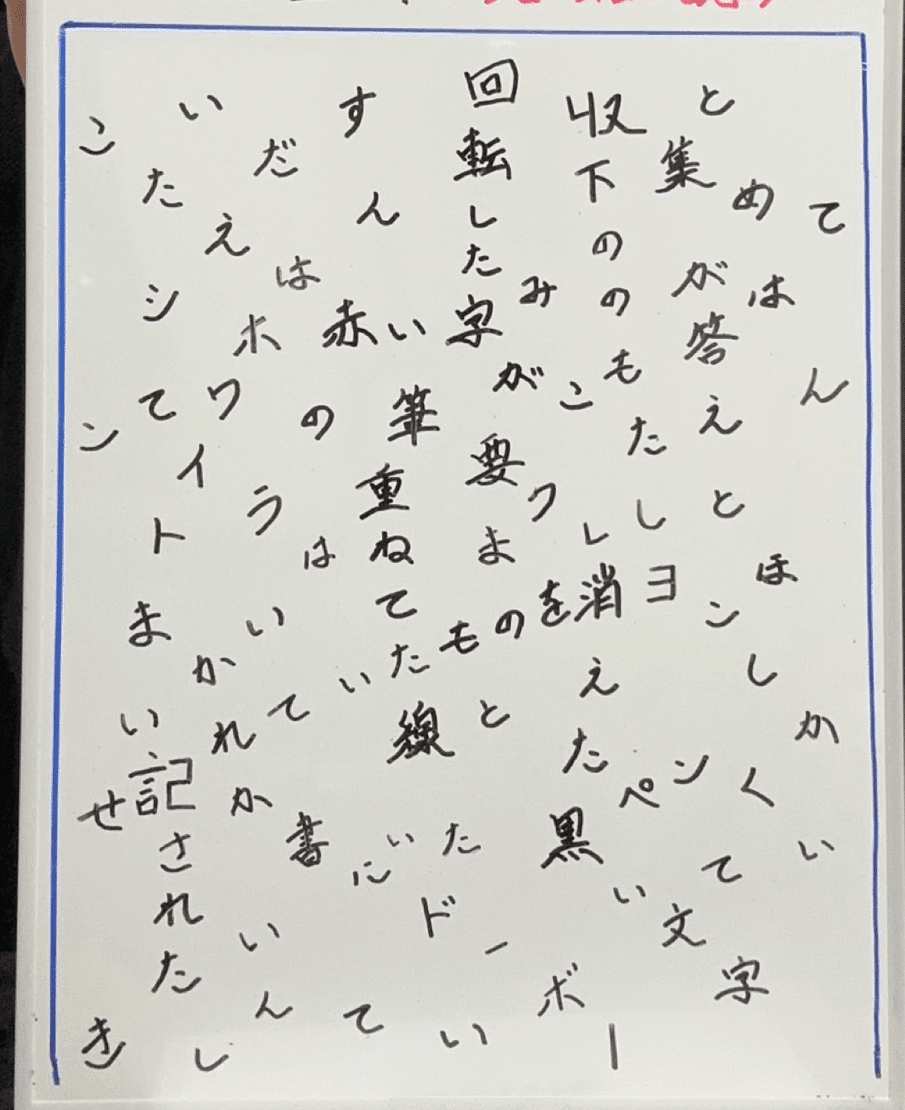 てんかい
めはほしく字
と集が答えとンンて文
収下ののもたしヨペい
みこクレを消えた黒ボー
回転した字が要まのとー
い筆重ねてもた線たドい
すん赤のはいいにて
だはホラいて書
いえワイかれかいん
たシてトまい記されたし
こンせき